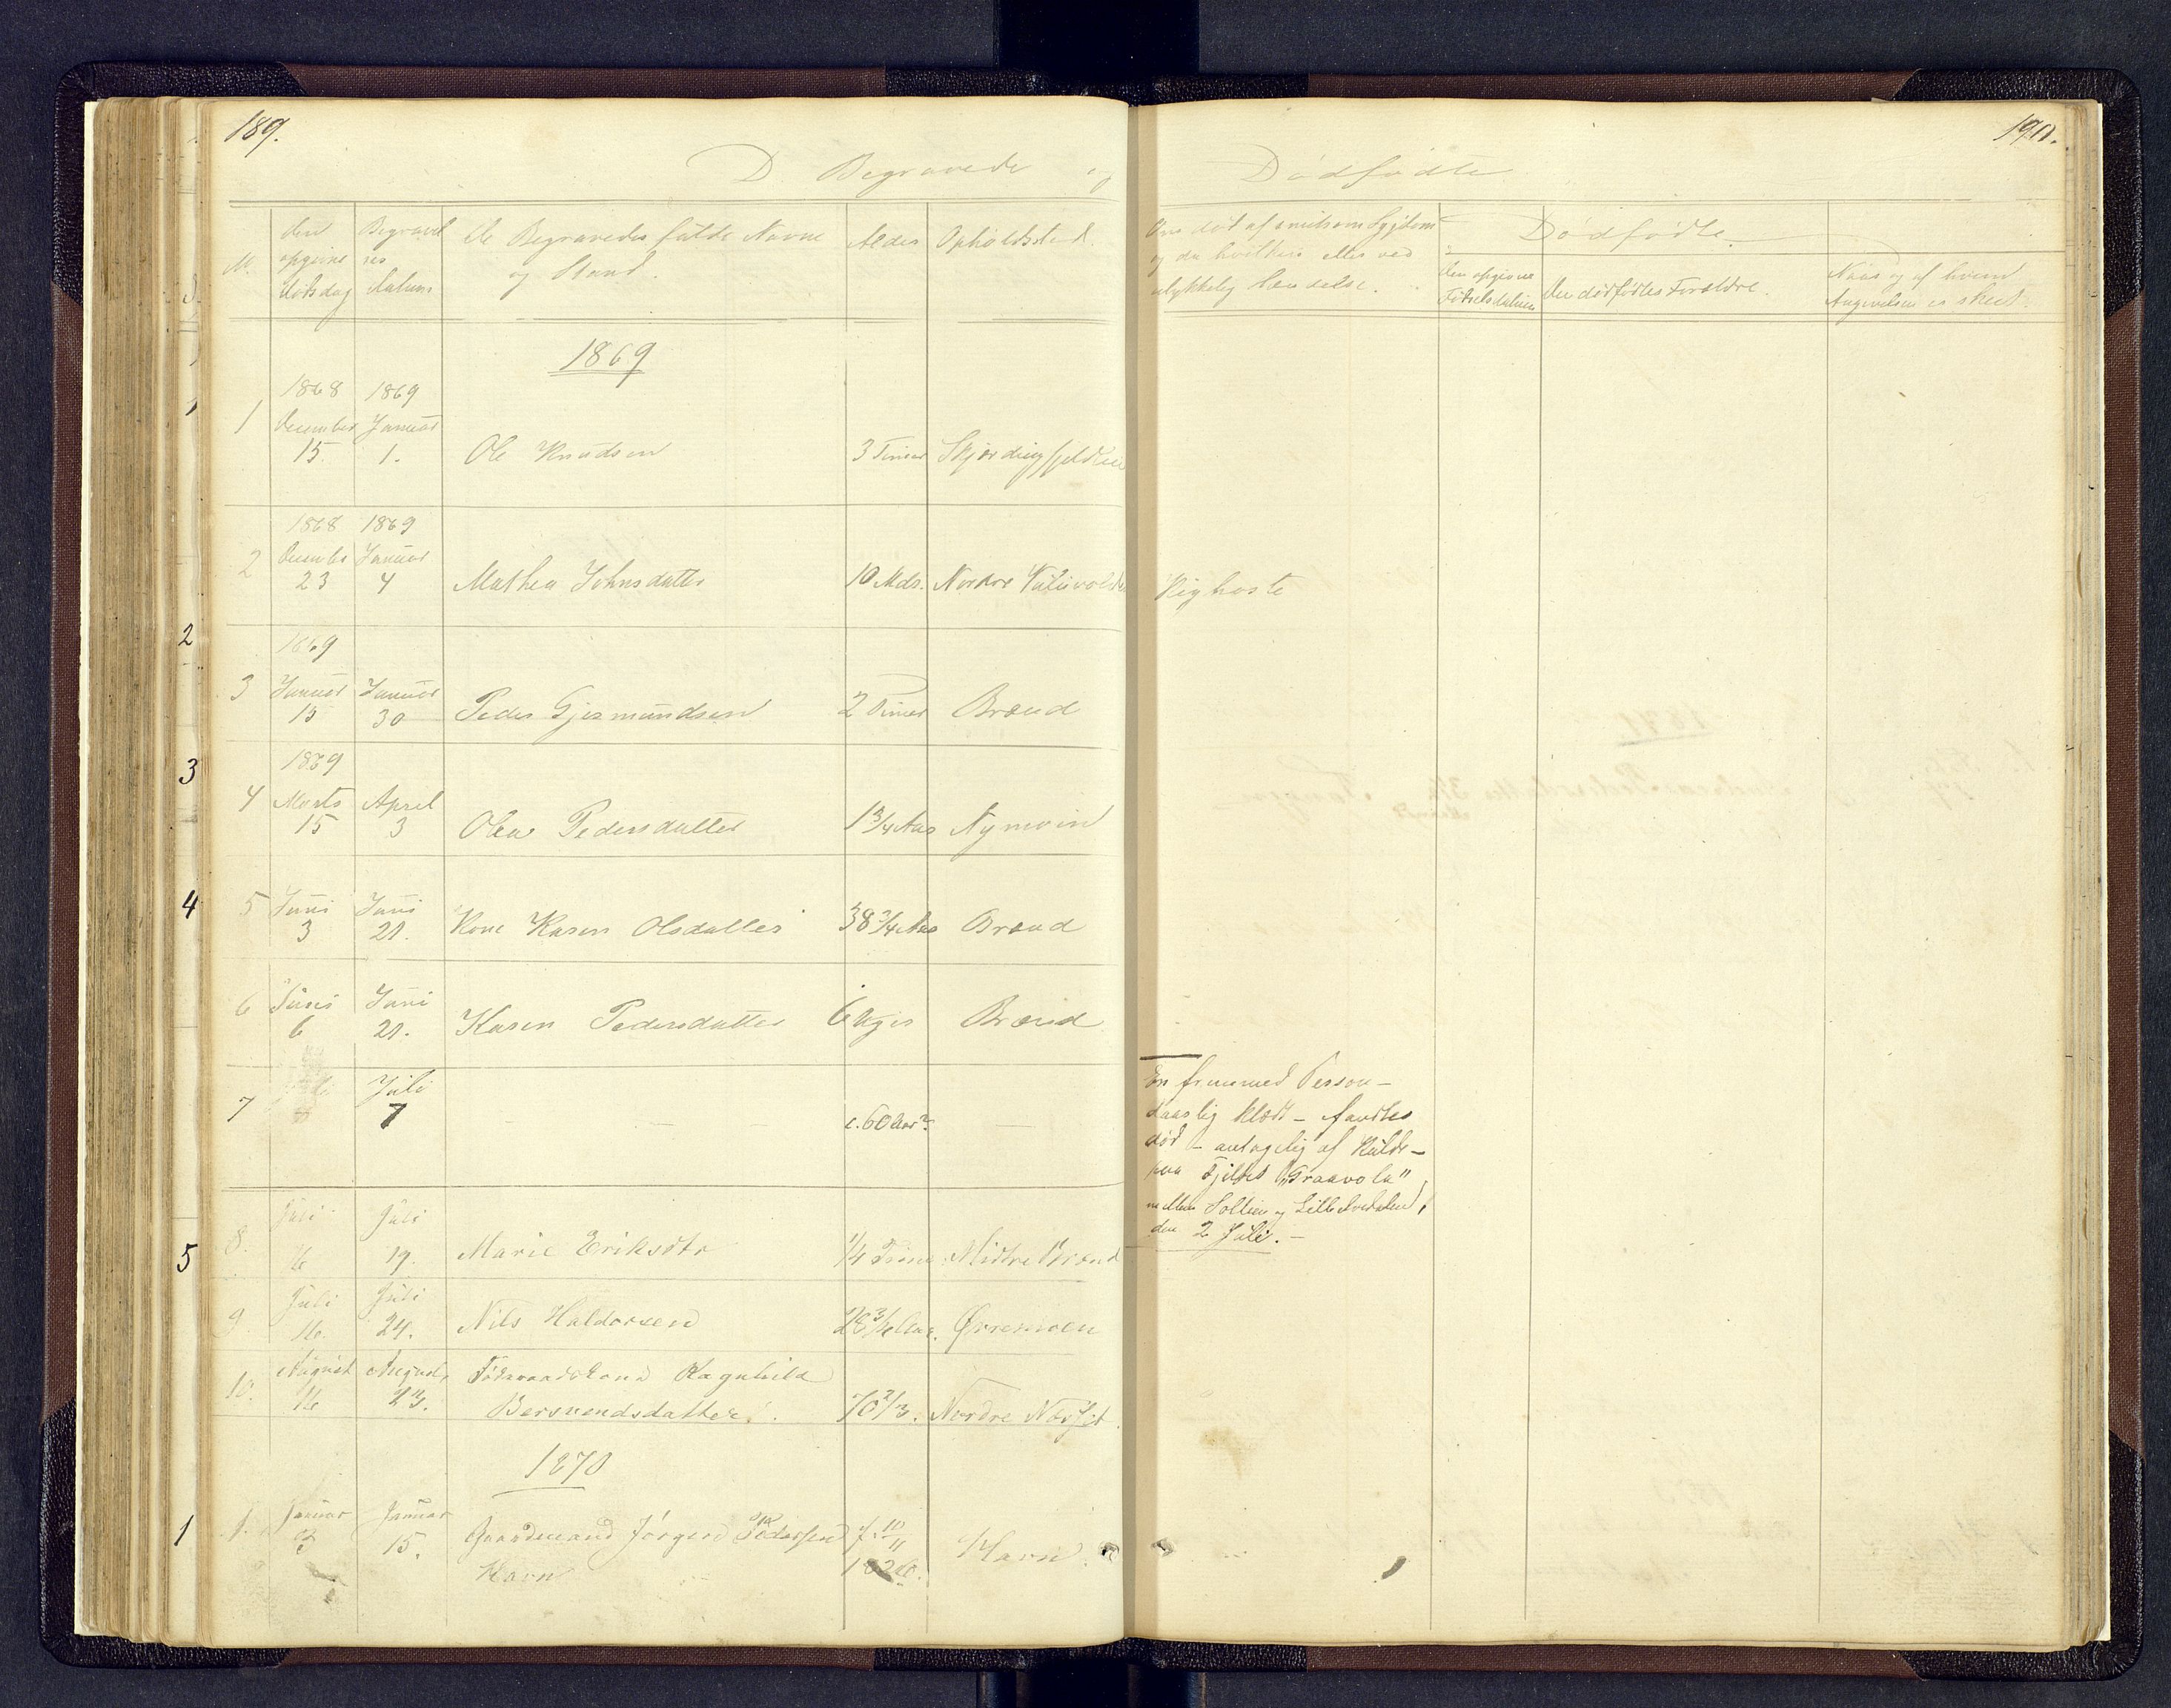 189.
D Begravede og
No. den opgivne Dødsdag
Begravelses Datum
De Begravedes fulde Navne og Stand.
Alder
Opholdssted.
1869
1 1868 December 15. 1869 Januar 1. Ole Knudsen 3 Timer
2 1868 December 23 1869 Januar 4 Mathea Johnsdatter 10 Mdr. Nordre
3 1869 Januar 15 Januar 30 Peder Gjermundsen 2 Timer Brænd
4 1869 Marts 15 April 3 Olea Pedersdatter 1 3/4 Aar Nymoen
5 Juni 3 Juni 21. Kone Karen Olsdatter 38 3/4 Aar Brænd
6 Juni 6 Juni 21. Karen Pedersdatter 6 Uger Brænd
7 Juli 7 — — — c. 60 Aar? —
8. Juli 16 Juli 19. Marie Eriksdtr 1/4 Time Midtre Brænd
9 Juli 16. Juli 24. Nils Haldorsen Ørremoen
10. August 16 August 23. Føderaadskone Ragnhild
Bersvendsdatter. 70 2/3. Nordre
1870
1. Januar 3 Januar 15. Gaardmand Jørgen Pedersen
Havn f. 10/11 Havn.
190.
Dødfødte
Om død af smitsom Sygdom
og da hvilken eller ved
ulykkelig Hændelse.
Dødfødte
Den opgivne
Fødselsdatum
De dødfødtes Forældre.
Naar og af hvem
Angivelsen er skeet.
Kighoste
En fremmed Person –
daarlig klædt – fandtes
død – antagelig af Kulde –
paa Fjeldet "Graavola"
mellem Sollien og Lille Elvedalen,
den 2 Juli. –
1
2
3
4
5
1